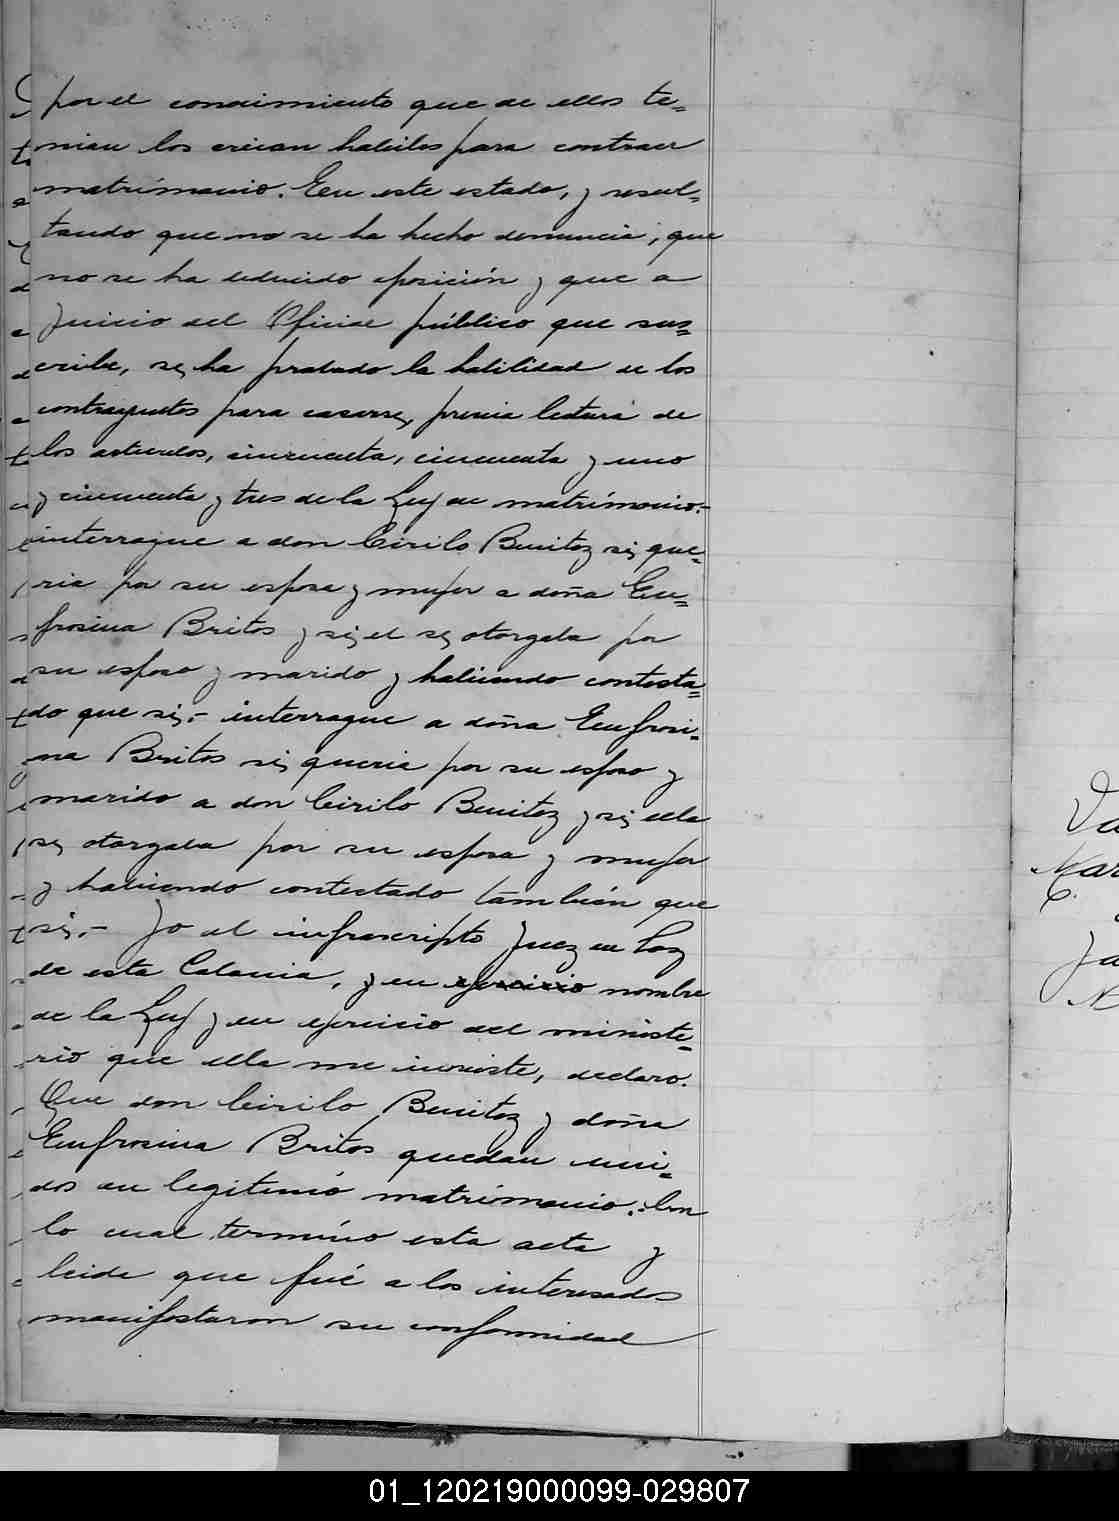 por el conocimiento que de ellos te=
nian los creian habiles para contraer
matrimonio. En este estado, y resul=
tando que no se ha hecho denuncia, que
no se ha deducido oposición y que a
juicio del Oficial público que sus=
cribe, se ha probado la habilidad de los
contrayentes para casarse, previa lectura de
los articulos, cincuenta, cincuenta y uno
y cincuenta y tres de la Ley de matrimonio.-
interrogue a don Cirilo Benitez si que=
ria por su esposa y mujer a doña Eu=
frosina Britos y si el se otorgaba por
su esposo y marido y habiendo contesta=
do que si,- interrogue a doña Eufrosi=
na Britos si queria por su esposo y
marido a don Cirilo Benitez y si ella
se otorgaba por su esposa y mujer
y habiendo contestado también que
si,- Yo el infrascripto Juez de Paz
de esta Colonia, y en ejercicio nombre
de la Ley y en ejercicio del ministe=
rio que ella me inviste, declaro.
Que don Cirilo Benitez y doña
Eufrosina Britos quedan uni=
dos en legitimó matrimonio. Con
lo cual termino esta acta y
leida que fué a los interesados
manifestaron su conformidad
Mar
01_120219000099-029807